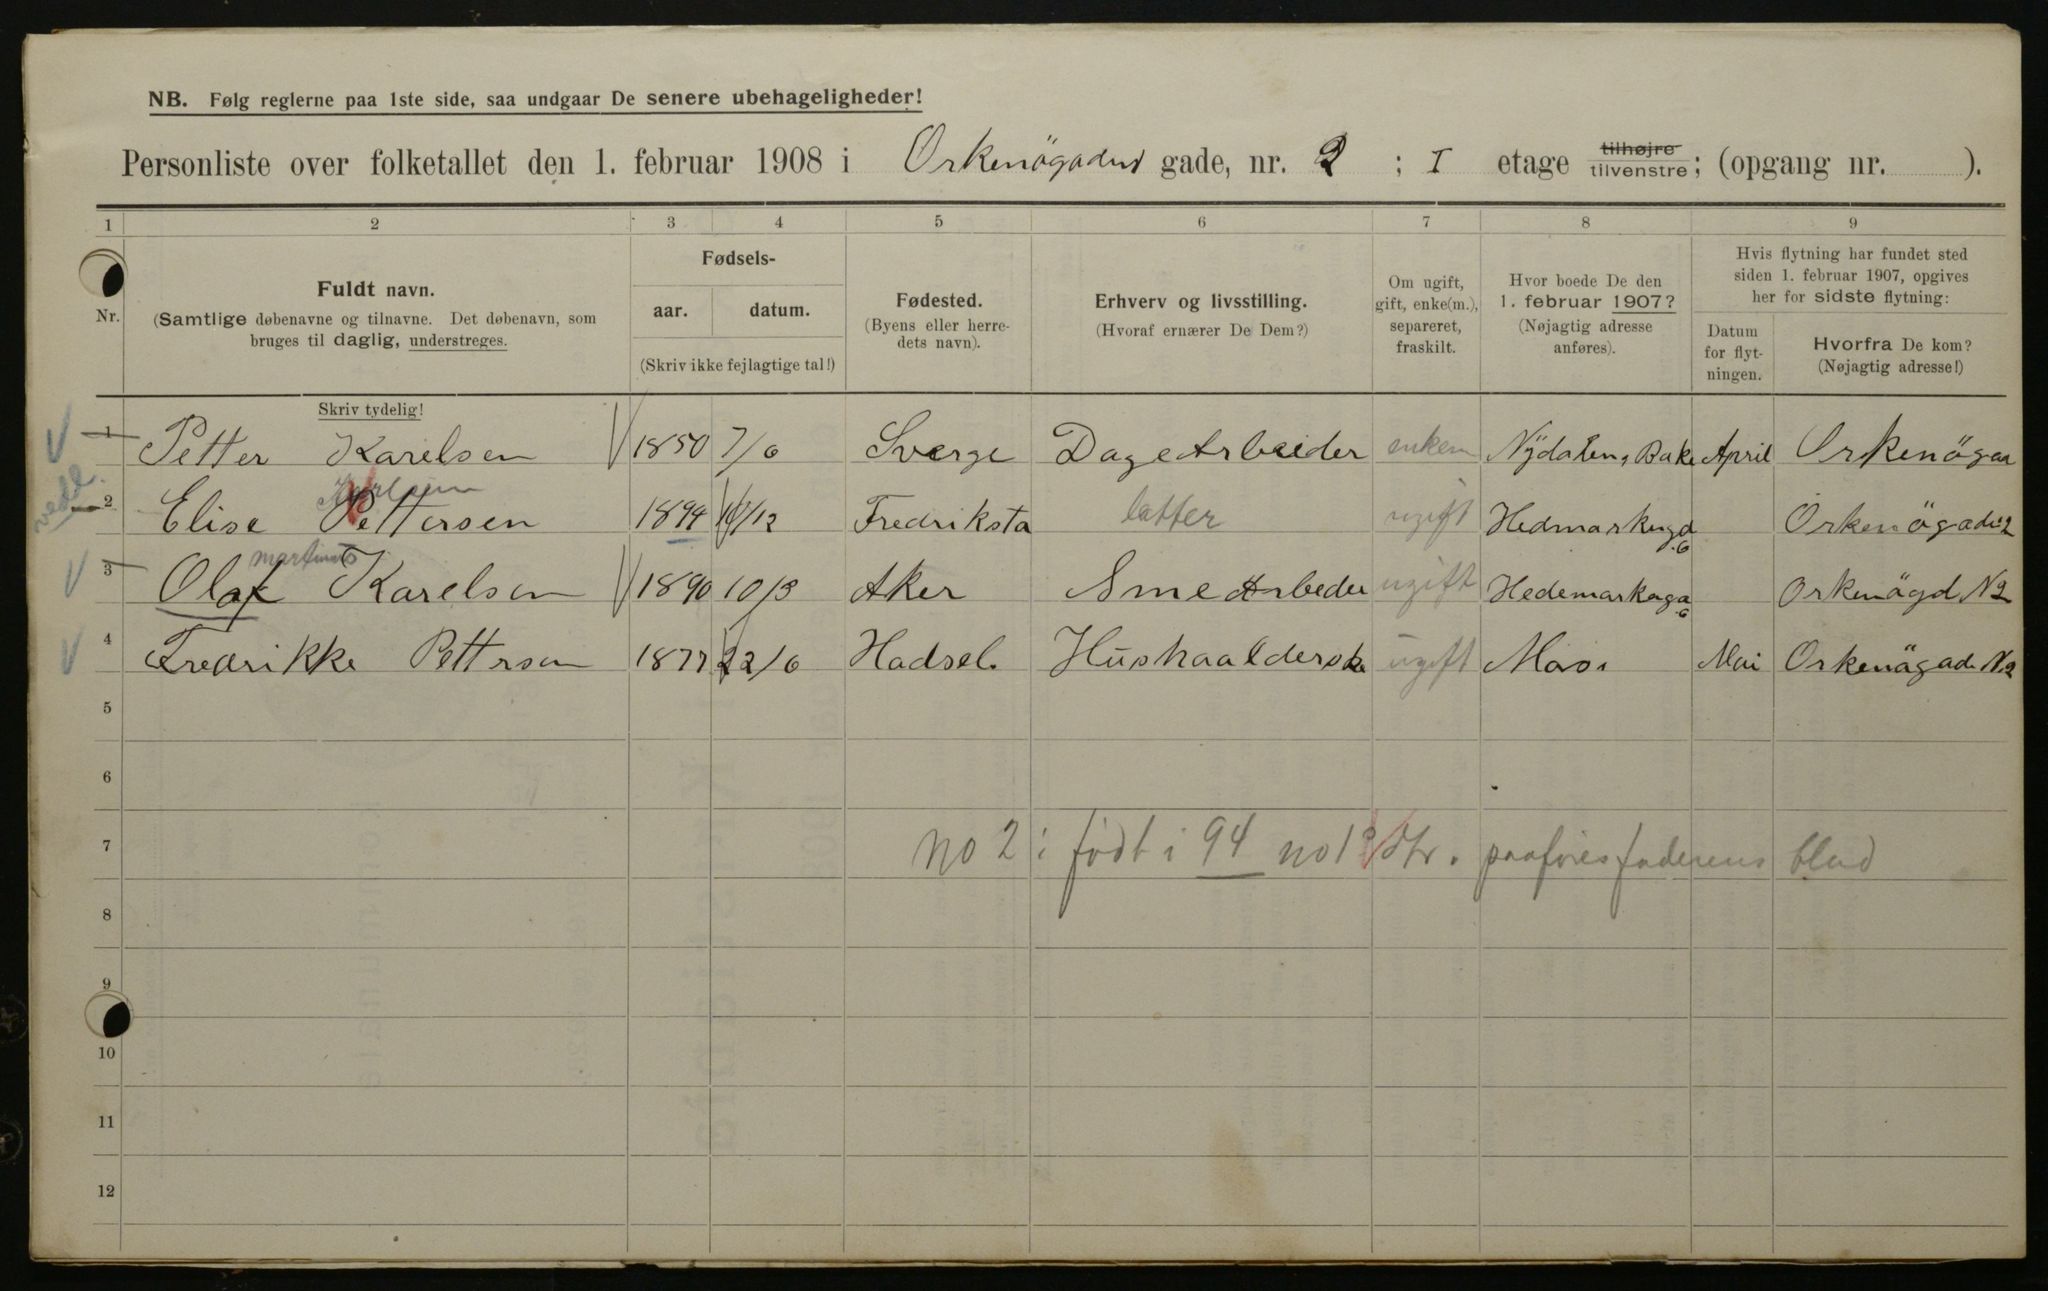 NB. Følg reglerne paa 1ste side, saa undgaar De senere ubehageligheder!
Personliste over folketallet den 1. februar 1908 i Orkenögaden gade, nr. 2 ; I etage tilhøjre tilvenstre; (opgang nr. ).
1 2 3 4 5 6 7 8 9
Nr.
Fuldt navn.
(Samtlige døbenavne og tilnavne. Det døbenavn, som
bruges til daglig, understreges.
Skriv tydelig!
Fødsels-
aar. datum.
(Skriv ikke fejlagtige tal!)
Fødested.
(Byens eller herre-
dets navn).
Erhverv og livsstilling.
(Hvoraf ernærer De Dem?)
Om ugift,
gift, enke(m.),
separeret,
fraskilt.
Hvor boede De den
1. februar 1907?
(Nøjagtig adresse
anføres).
Hvis flytning har fundet sted
siden 1. februar 1907, opgives
her for sidste flytning:
Datum
for flyt-
ningen.
Hvorfra De kom?
(Nøjagtig adresse!)
1 Petter Karelsen 1850 7/6 Sverge Dagearbeider enkem Nydalen, Bake April Orkenögaa
Karlsen
2 Elise Pettersen 1894 10/12 Fredriksta datter ugift Hedmarkengd 6 Orkenögade 2
martinus
3 Olaf Karelsen 1890 10/3 Aker Smearbeder ugift Hedemarkaga 6 Orkenögd N2
4 Fredrikke Pettersen 1877 22/6 Hadsel. Hushaalderske ugift Mos. Mai Orkenögade N2
5
6
7 no 2 i født i 94 no 1 dtr. paaføres faderens blad
8
9
10
11
12